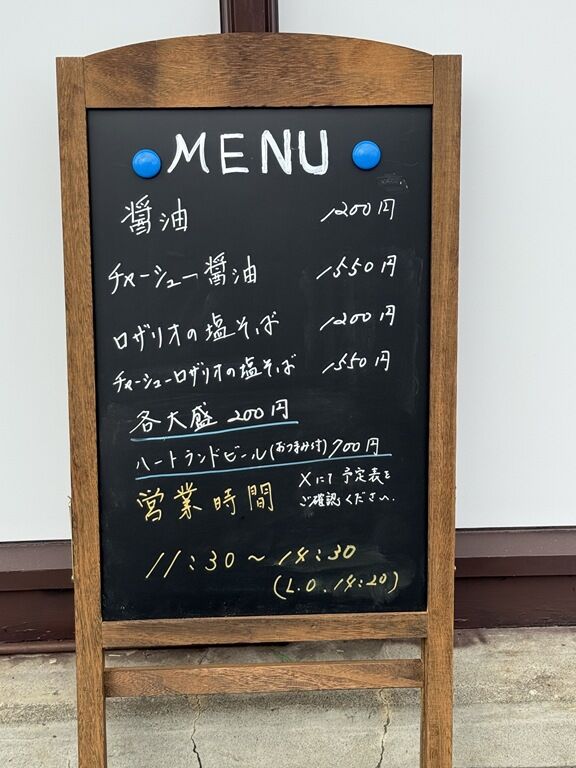 MENU
醤油 1200円
チャーシュー醤油 1550円
ロザリオの塩そば 1200円
チャーシューロザリオの塩そば 1550円
各大盛 200円
ハートランドビール(おつまみ付) 700円
営業時間 Xにて予定表を
ご確認ください.
11:30～14:30
(L.O.14:20)